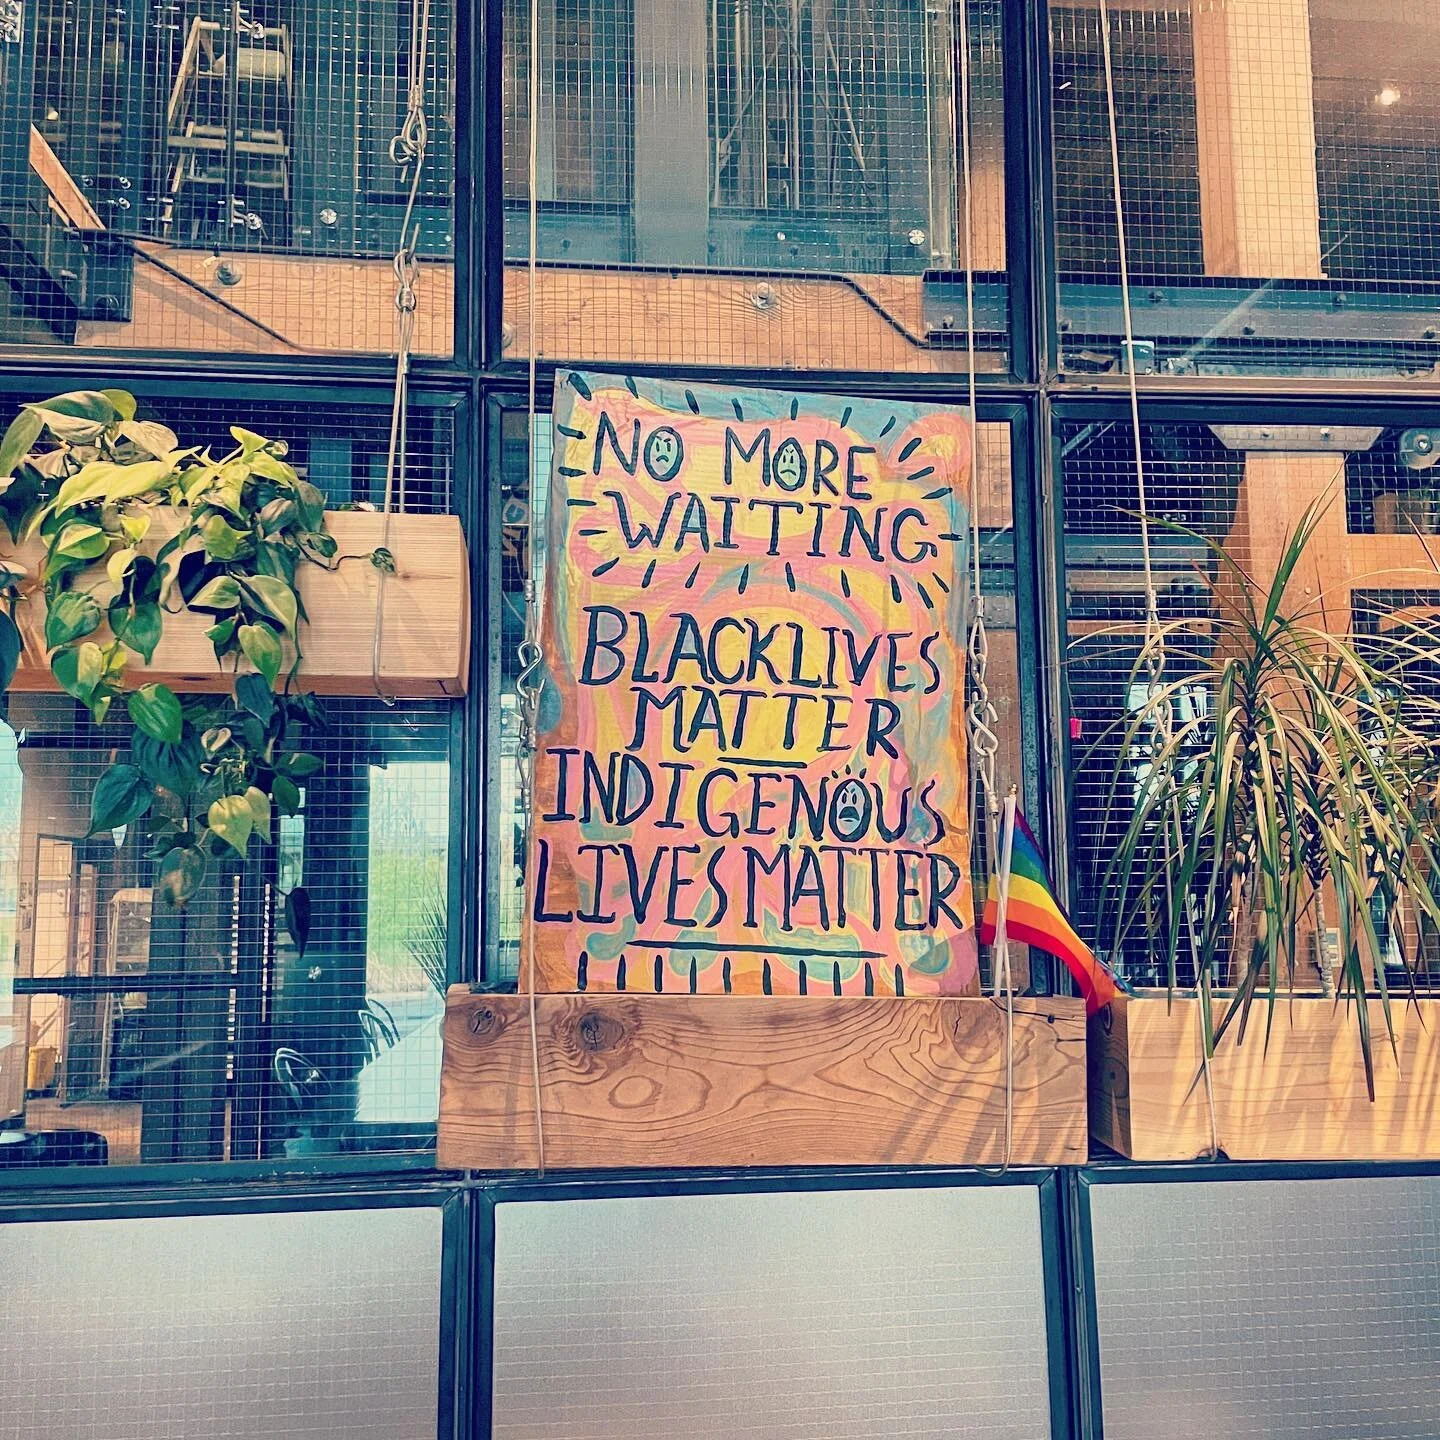 NO MORE
WAITING
BLACK LIVES
MATTER
INDIGENOUS
LIVES MATTER